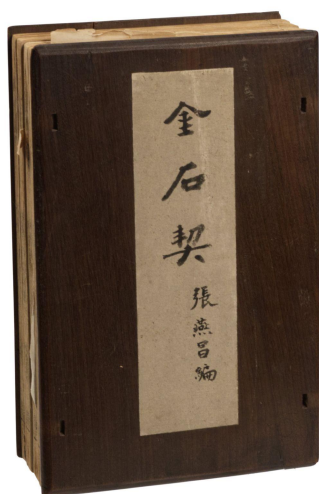 金石契
張燕昌編